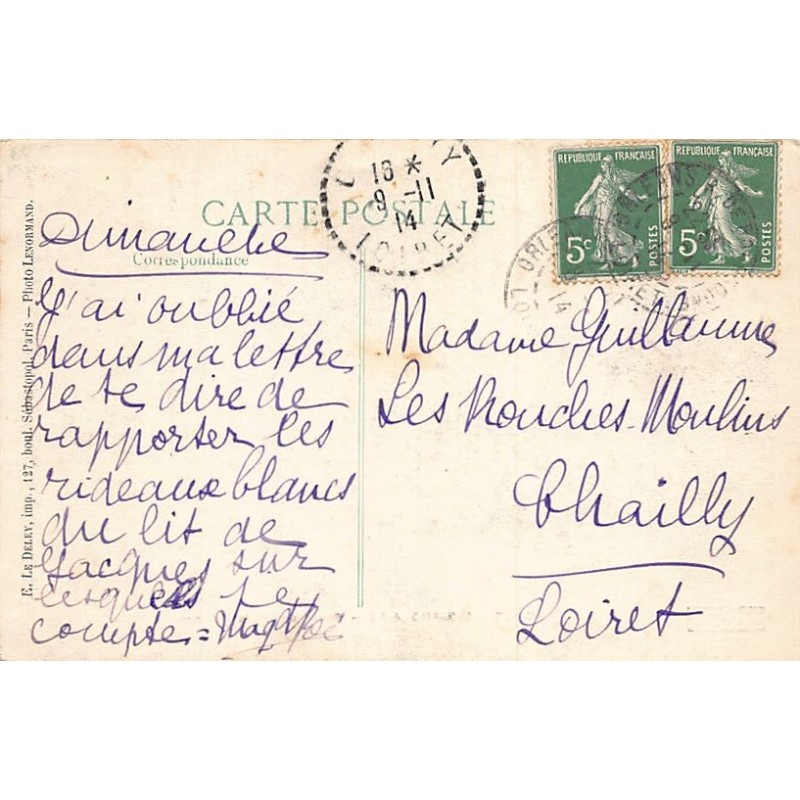 CARTE POSTALE
Correspondance
E. LE DELEY, imp., 127, boul. Sébastopol, Paris — Photo LENORMAND.
18 *
9 -11
14
LOIRET
REPUBLIQUE FRANÇAISE
5c
POSTES
REPUBLIQUE FRANÇAISE
5c
POSTES
Dimanche
J'ai oublié
dans ma lettre
de te dire de
rapporter les
rideaux blancs
du lit de
Jacques sur
lesquels je
compte =
Madame Guillaume
Les Rouches-Moulins
Chailly
Loiret